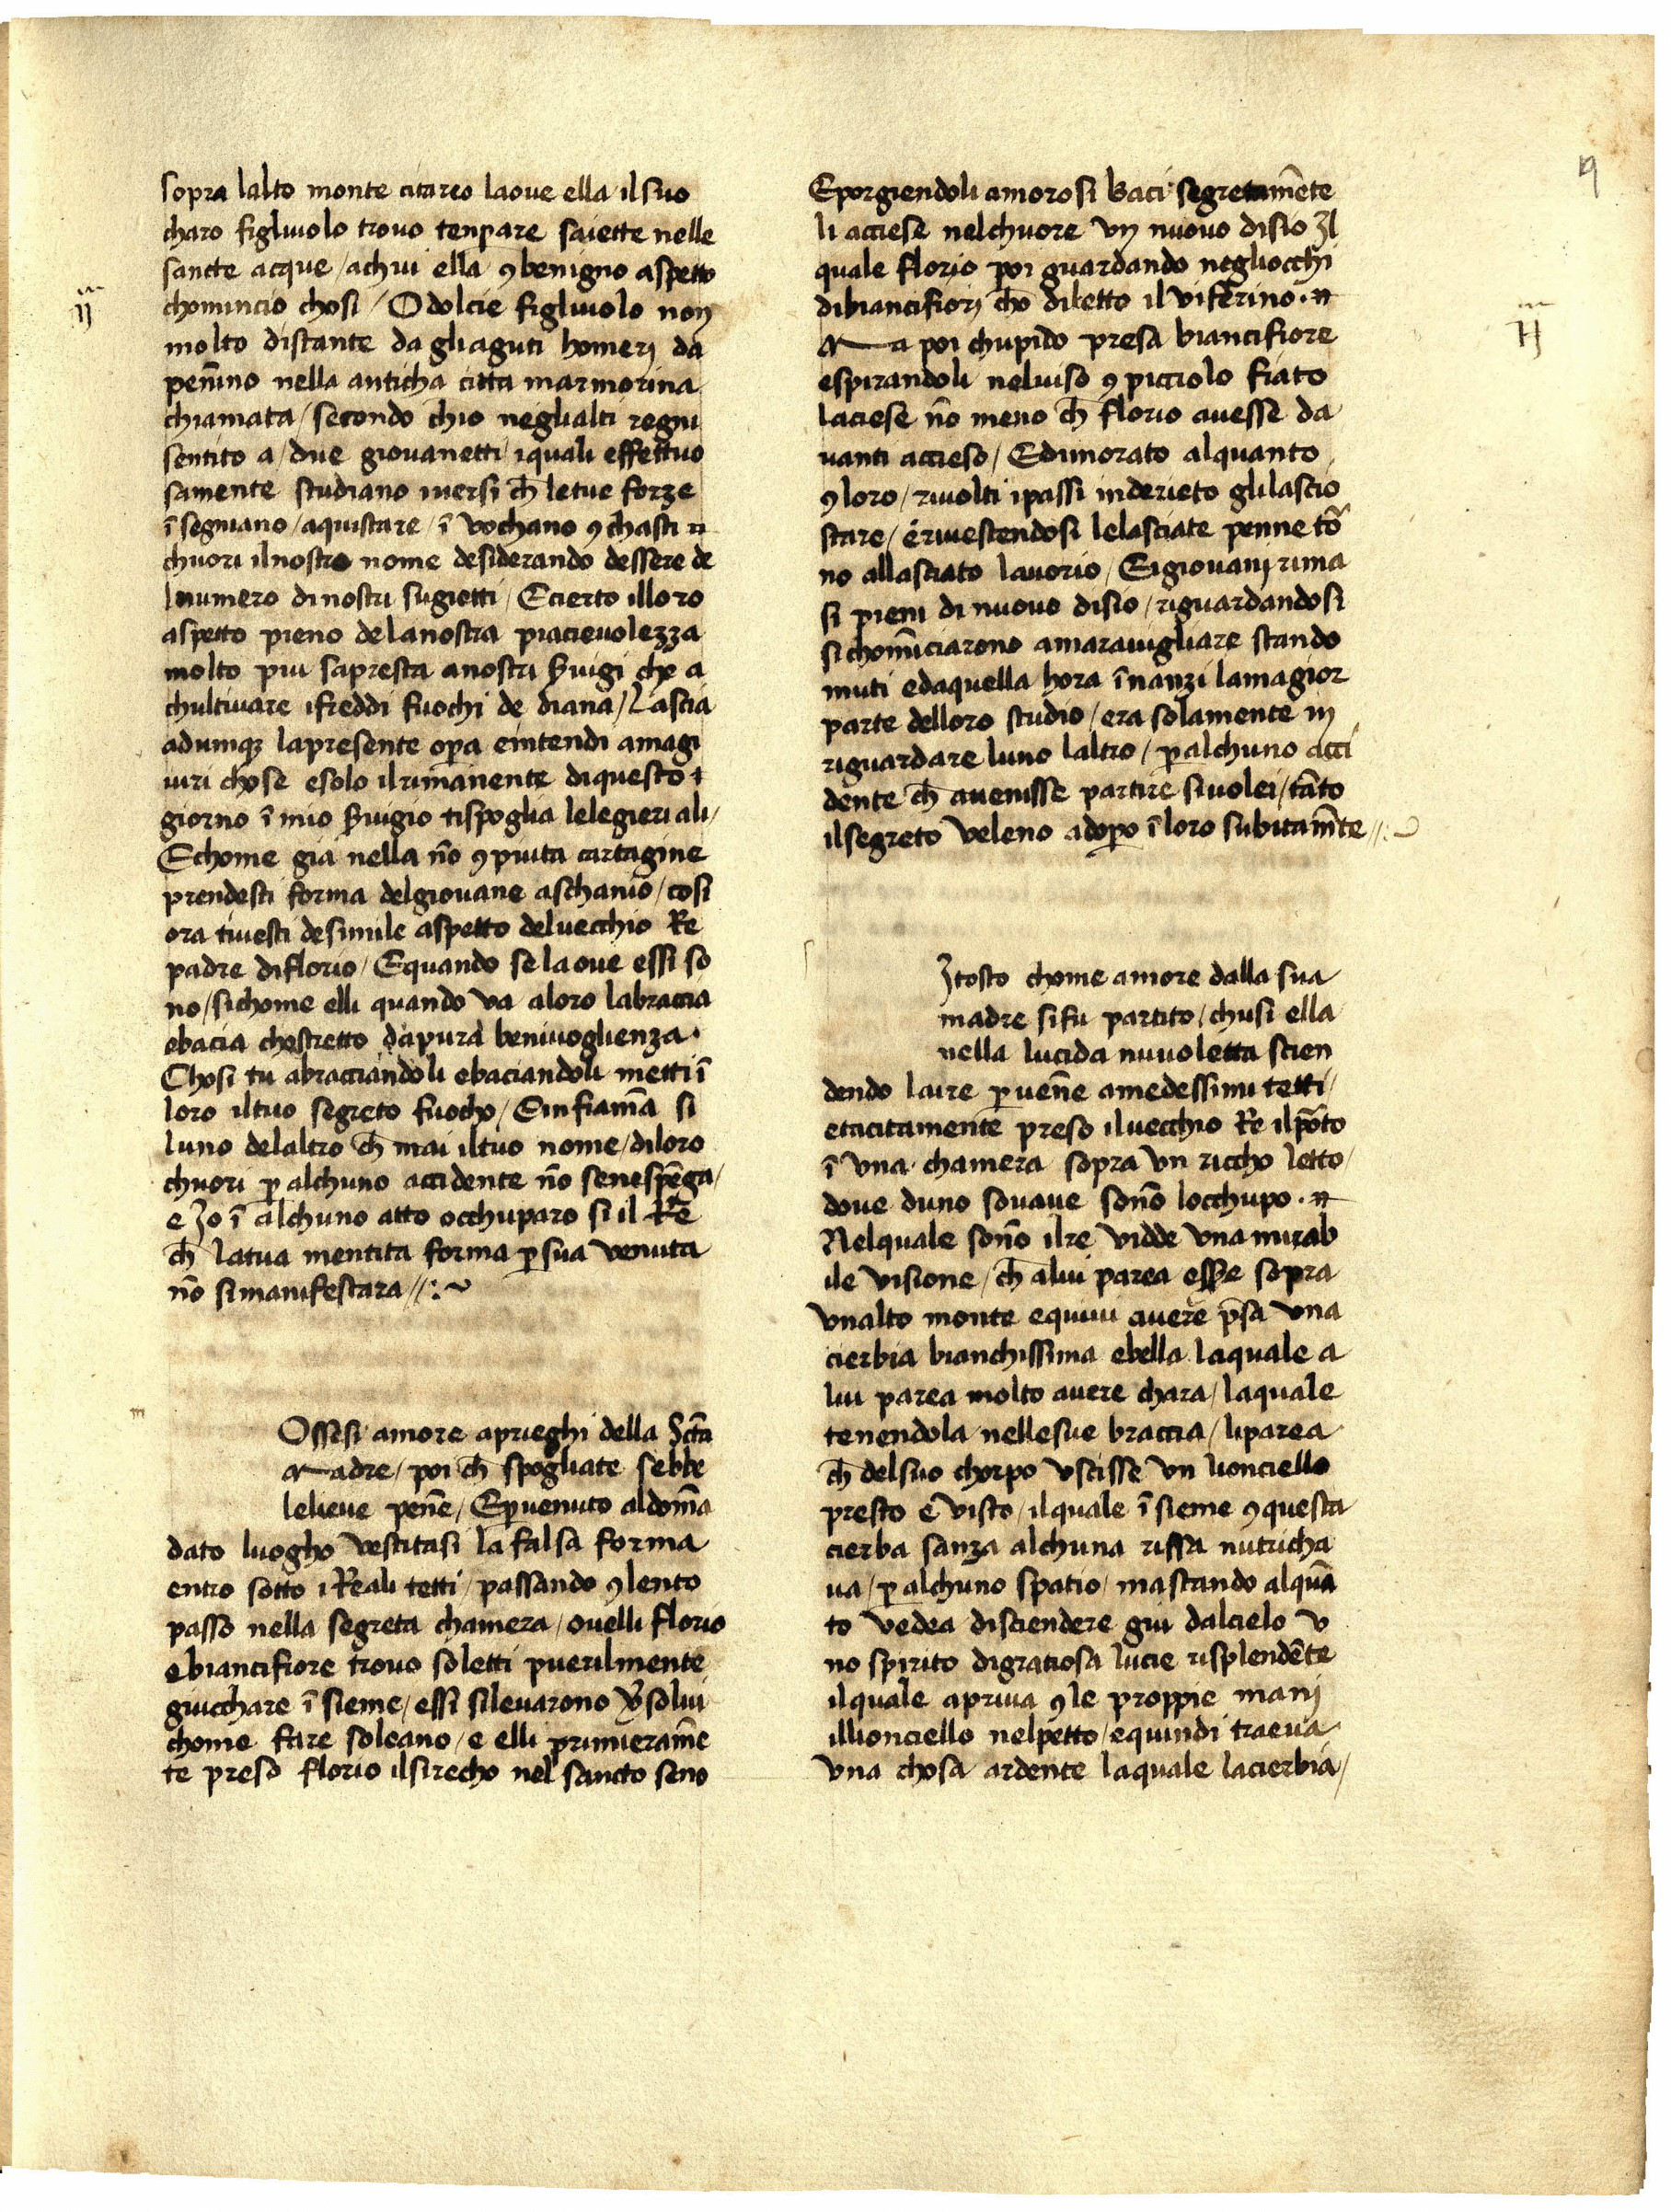 19
sopra lalto monte citareo laoue ella ilsuo
charo figluuolo trouo tenpare saiette nelle
sancte acque / achui ella ꝯ benigno aspetto
chomincio chosi / O dolcie figluuolo non
molto distante da gliaguti homerj da
peñino nella anticha citta marmorina
chiamata / secondo chio neglialti regni
sentito a / due giouanetti iquali effettuo
samente studiano iuersi ch̄ letue forze
ī segniano / aquistare / ī vochano ꝯ chasti
chuori ilnostro nome desiderando dessere de
lnumero dinostri sugietti / Ecierto illoro
aspetto pieno delanostra piacieuolezza
molto piu sapresta anostri s̄uigi che a
chultiuare ifreddi fuochi de diana / Lascia
adunqꝫ lapresente oꝑa eintendi amagi
iuri chose esolo ilrimanente diquesto
giorno ī mio s̄uigio tispoglia lelegieri ali /
Echome gia nella nō ꝯpiuta cartagine
prendesti forma delgiouane aschanio / cosi
ora tiuesti desimile aspetto deluecchio Re
padre diflorio / Equando se laoue essi so
no / sichome elli quando va aloro labraccia
ebacia chostretto dapura beniuoglienza ·
Chosi tu abracciandoli ebaciandoli metti ī
loro iltuo segreto fuocho / Einfiam̄a si
luno delaltro ch̄ mai iltuo nome / diloro
chuori ꝑ alchuno accidente nō senespēga /
e Jo ī alchuno atto occhuparo si il Re
ch̄ latua mentita forma ꝑ sua venuta
nō simanifestara // : ~
Ossesi amore aprieghi della Sc̄ta
Madre / poi ch̄ spogliate sebbe
lelieue peñe / Eꝑuenuto aldom̄a
dato luogho vestitasi la falsa forma
entro sotto i Reali tetti / passando ꝯ lento
passo nella segreta chamera / ouelli florio
ebiancifiore trouo soletti puerilmente
giucchare ī sieme / essi sileuarono v̄so lui
chome fare soleano / e elli primieram̄e
te preso florio ilsirecho nel sancto seno
Eporgiendoli amorosi baci segretam̄ente
li acciese nelchuore vn nuouo disio Jl
quale florio poi guardando negliocchi
dibiancifiorj chō diletto il viferino ·
Ma poi chupido presa biancifiore
espirandoli neluiso ꝯ picciolo fiato
laciese nō meno ch̄ florio auesse da
uanti acciesо / Edimorato alquanto
ꝯ loro / riuolti ipassi inderieto glilascio
stare / e riuestendosi lelasciate penne to
no allasciato lauorio / Eigiouanj rima
si pieni di nuouo disio / riguardandosi
si chomīciarono amarauigliare stando
muti edaquella hora īnanzi lamagior
parte delloro studio / era solamente in
riguardare luno laltro / ꝑ alchuno acci
dente ch̄ auenisse partire siuolei / tāto
ilsegreto veleno adoꝑo ī loro subitam̄te // :
Jtosto chome amore dalla sua
madre sifu partito / chusi ella
nella lucida nuuoletta scien
dendo laire ꝑueñe amedessimi tetti /
etacitamente preso iluecchio Re ilpōto
ī vna chamera sopra vn riccho letto /
doue duno souaue soño locchupo ·
Nelquale soño ilre vidde vna mirab
ile visione / ch̄ alui parea esse sopra
vnalto monte equiui auere p̄sa vna
cierbia bianchissima ebella laquale a
lui parea molto auere chara / laquale
tenendola nellesue braccia / liparea
ch̄ delsuo chorpo vscisse vn lionciello
presto e visto / ilquale ī sieme ꝯ questa
cierba sanza alchuna rissa nutricha
ua / ꝑ alchuno spatio / mastando alquā
to vedea disciendere giu dalcielo v
no spirito digratiosa lucie risplendēte
ilquale apriua ꝯ le proppie manj
illionciello nelpetto / equindi traeua
vna chosa ardente laquale lacierbia /